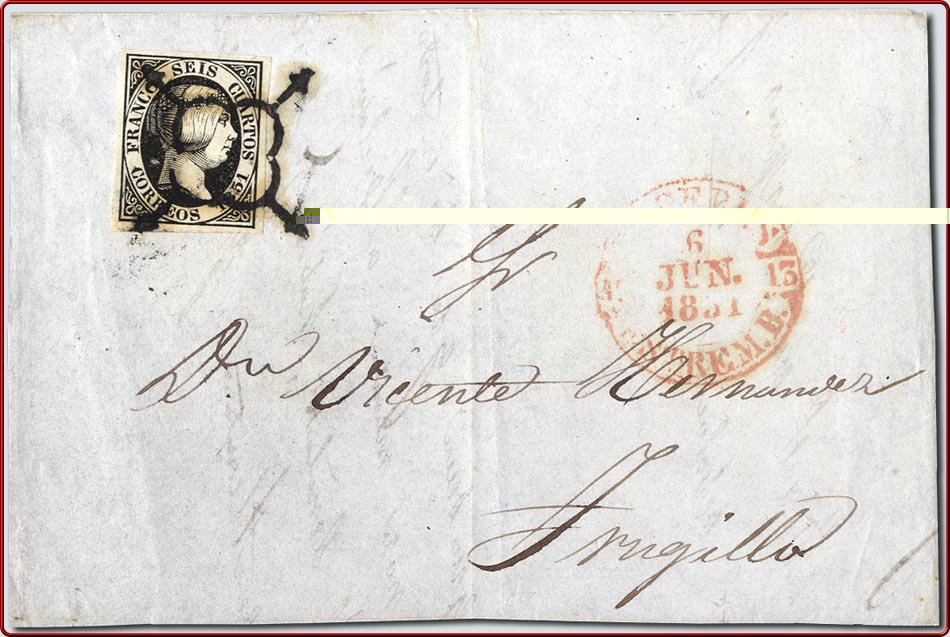 FRANCO SEIS CUARTOS 1851
CORREOS
6
JUN.
1851
13
EXTREM. B.
Sr
Dn Vicente Hernandez
Trugillo